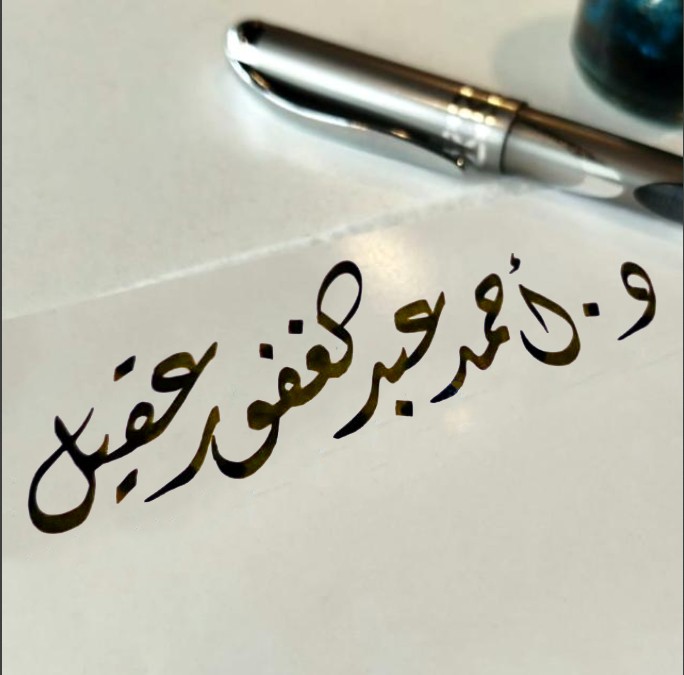 و. أحمد عبد الغفور عقيل